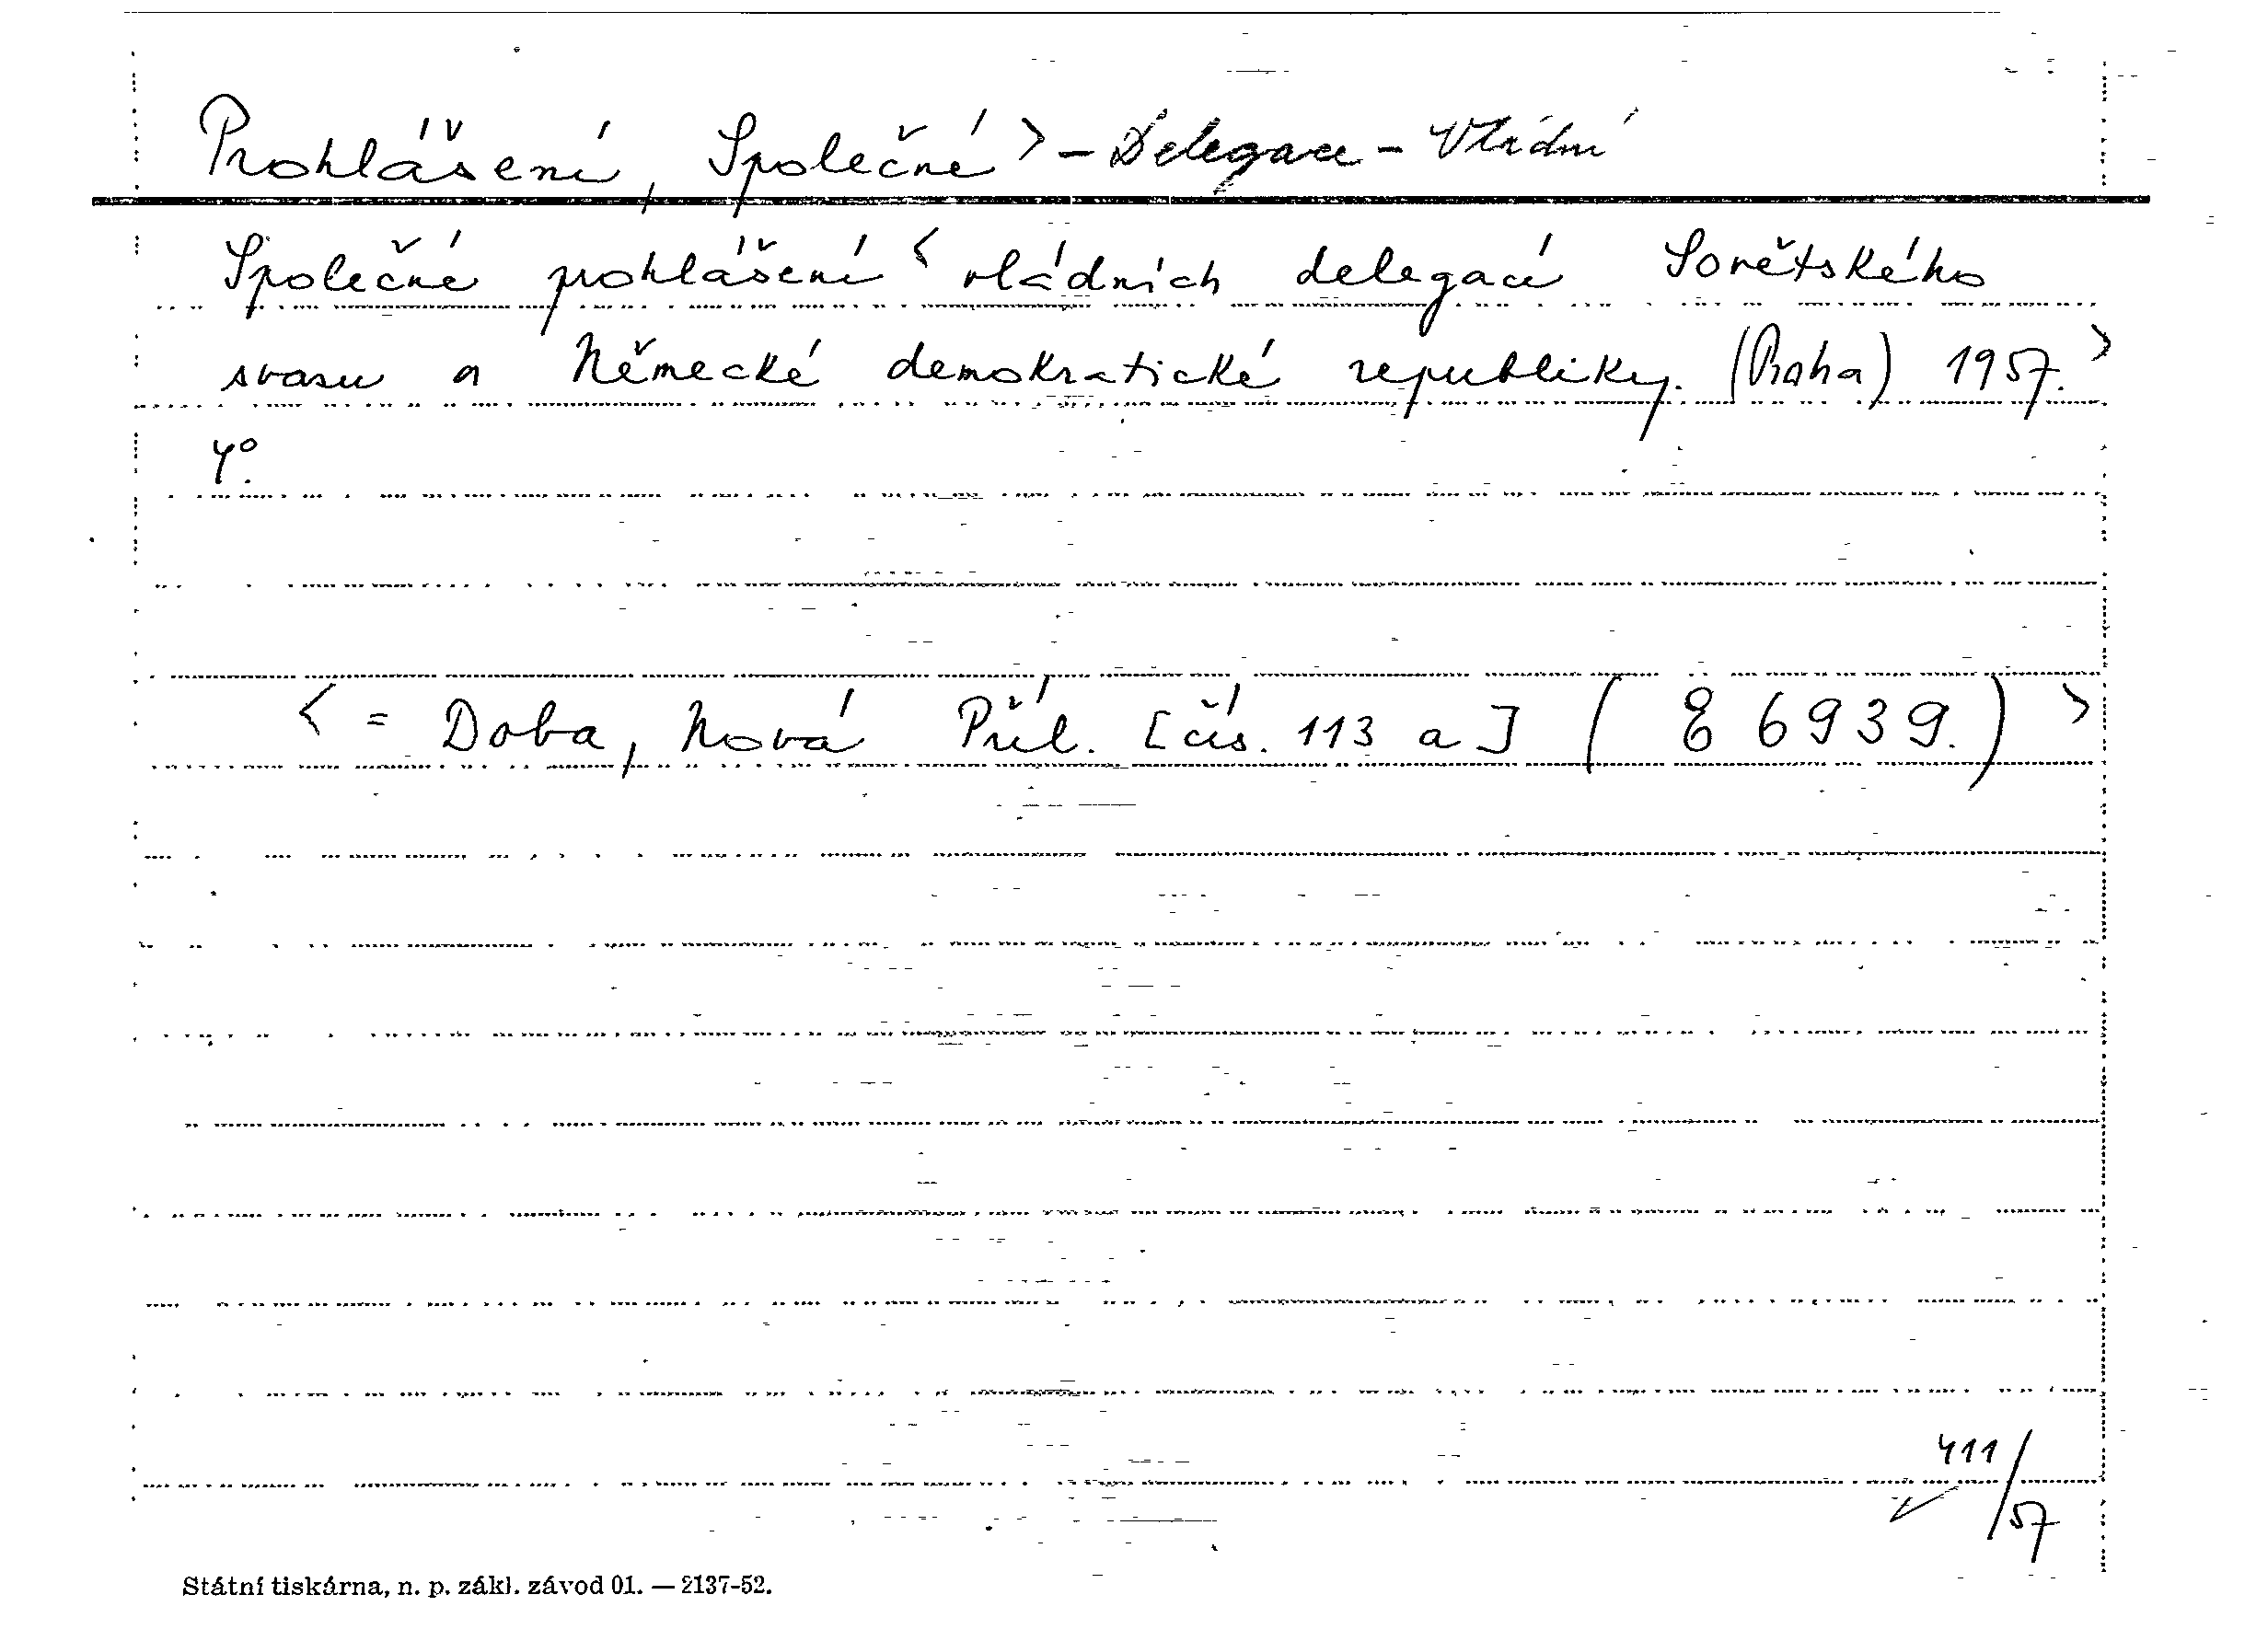 Prohlášení, Společné > - Delegace - Vládní
Společné prohlášení < vládních delegací Sovětského
svazu a Německé demokratické republiky. (Praha) 1957. >
4°.
< = Doba, Nová Příl. [čís. 113 a] ( E 6939. ) >
411/57
Státní tiskárna, n. p. zákl. závod 01. — 2137-52.